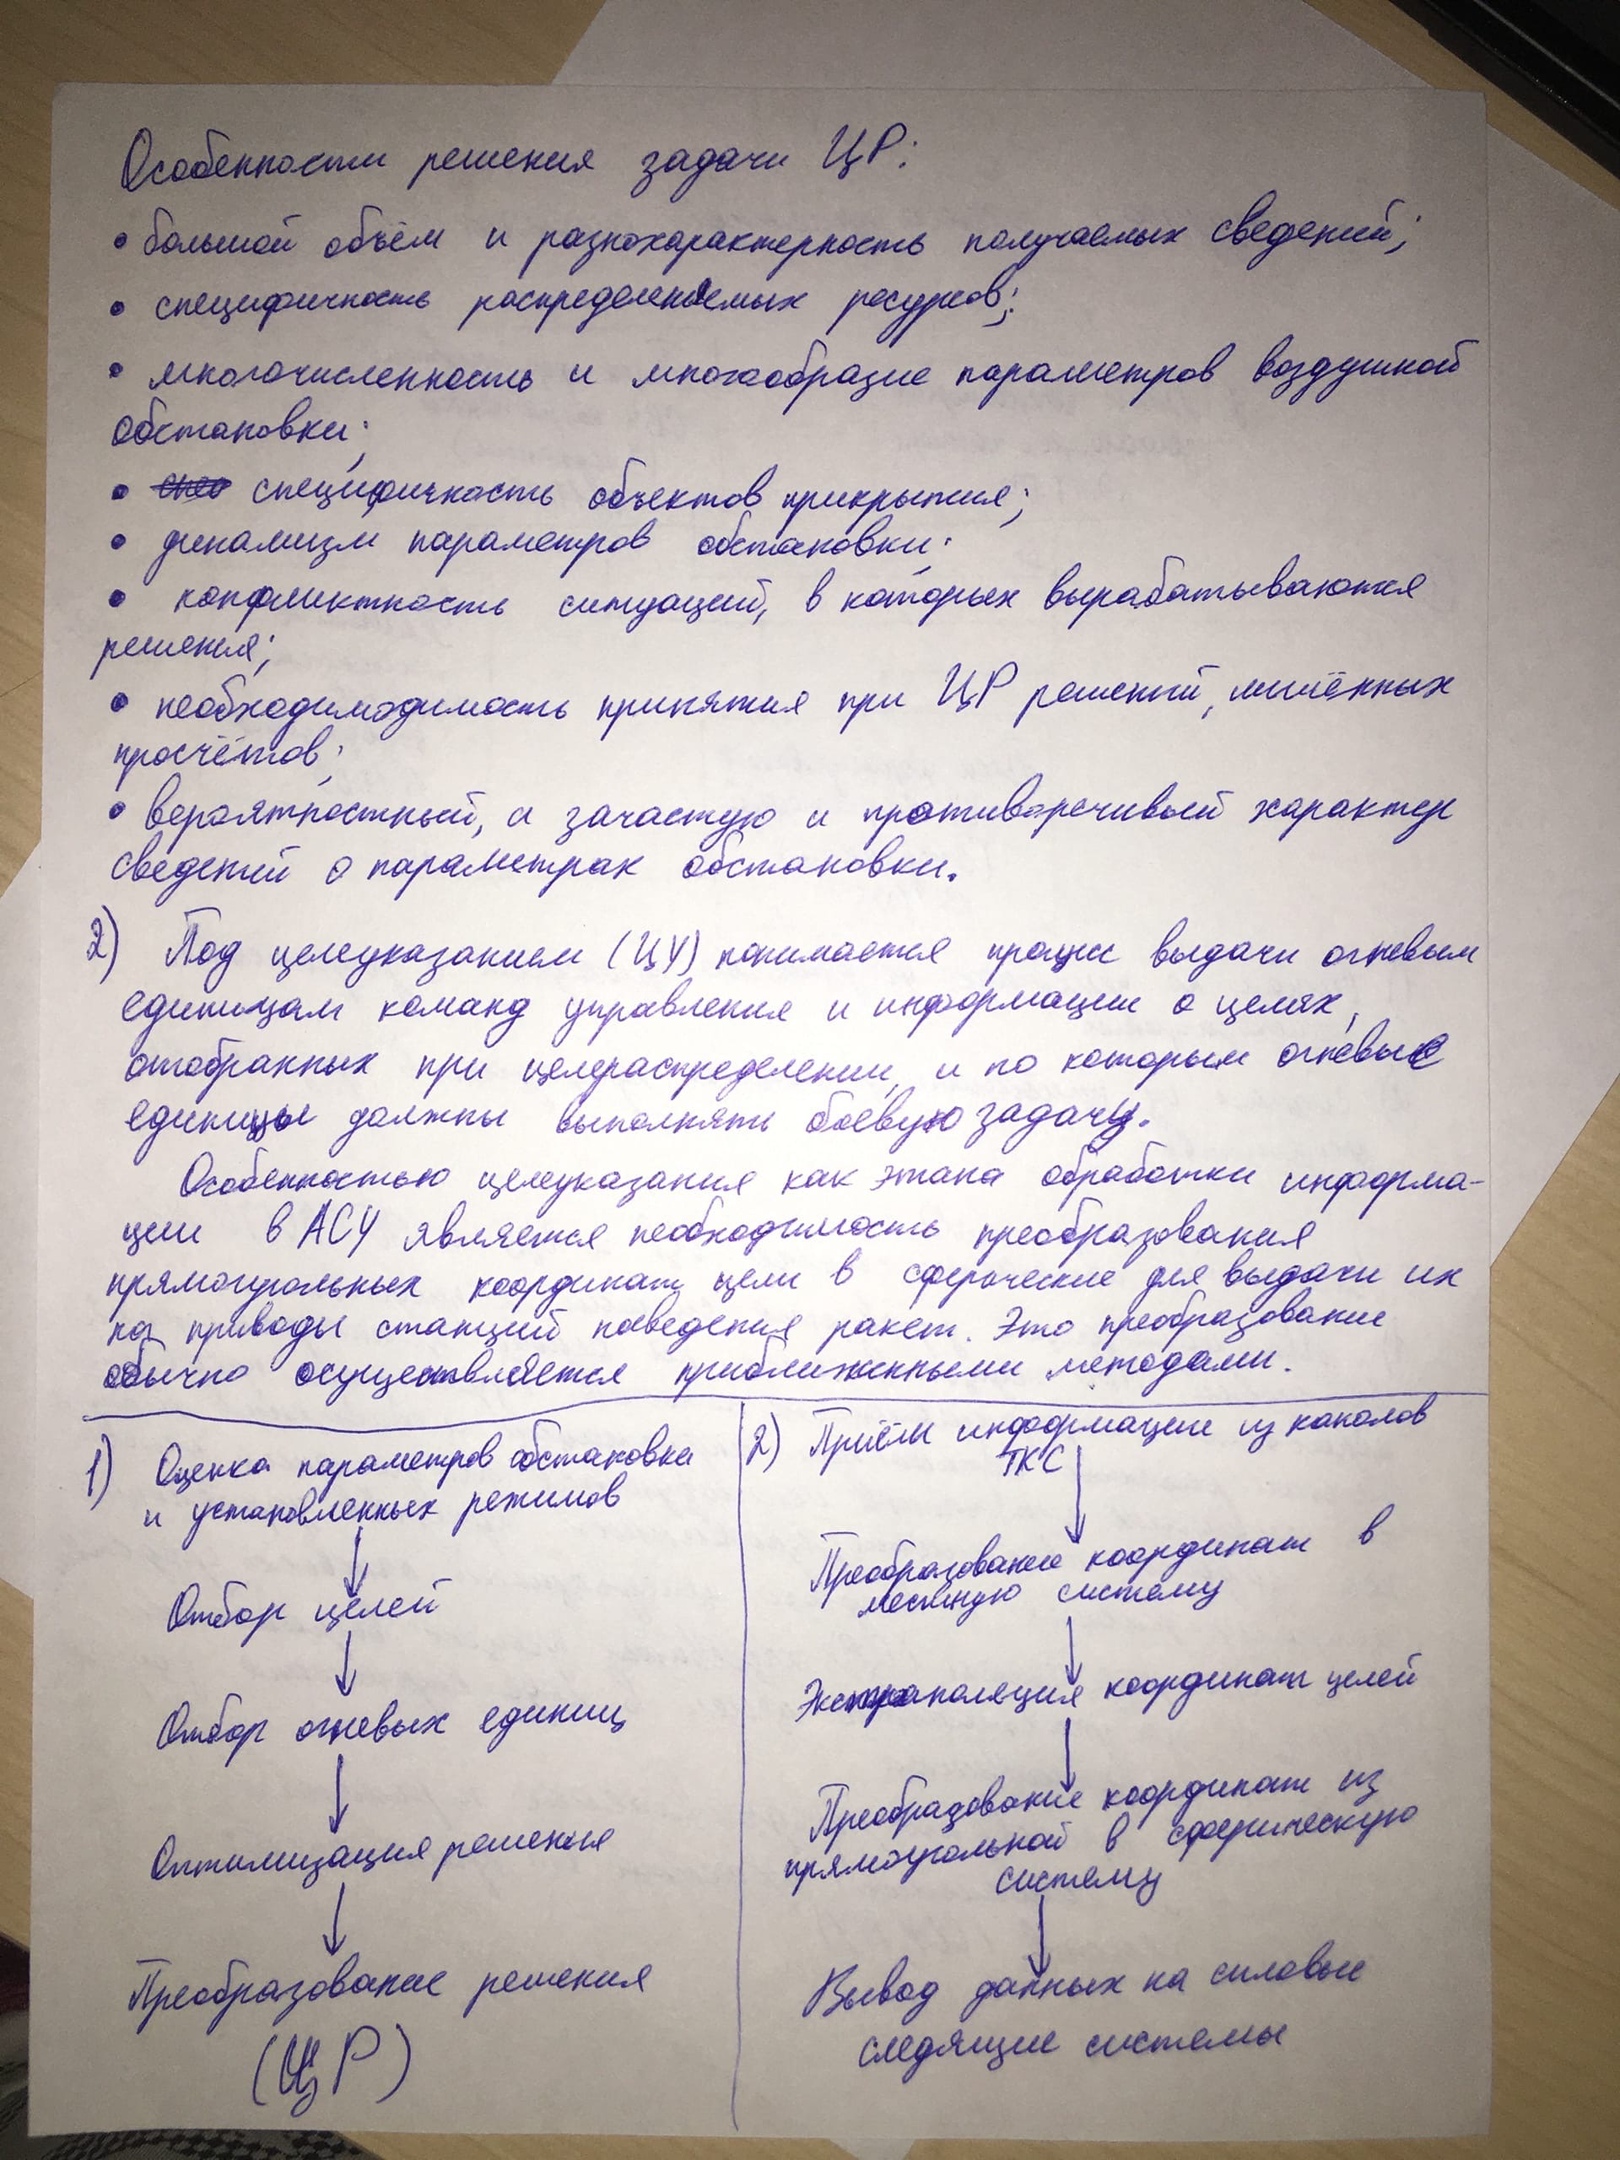 Особенности решения задачи ЦР:
• большой объём и разнохарактерность получаемых сведений;
• специфичность распределяемых ресурсов;
• многочисленность и многообразие параметров воздушной
обстановки;
• специфичность объектов прикрытия;
• динамизм параметров обстановки;
• конфликтность ситуаций, в которых вырабатываются
решения;
• необходимодимость принятия при ЦР решений, лишённых
просчётов;
• вероятностный, а зачастую и противоречивый характер
сведений о параметрах обстановки.
2) Под целеуказанием (ЦУ) понимается процесс выдачи огневым
единицам команд управления и информации о целях,
отобранных при целераспределении, и по которым огневые
единицы должны выполнять боевую задачу.
Особенностью целеуказания как этапа обработки информа-
ции в АСУ является необходимость преобразования
прямоугольных координат цели в сферические для выдачи их
на приводы станций наведения ракет. Это преобразование
обычно осуществляется приближенными методами.
1) Оценка параметров обстановки
и установленных режимов
Отбор целей
Отбор огневых единиц
Оптимизация решения
Преобразование решения
(ЦР)
2) Приём информации из каналов
ТКС
Преобразование координат в
местную систему
Экстраполяция координат целей
Преобразование координат из
прямоугольной в сферическую
систему
Вывод данных на силовые
следящие системы